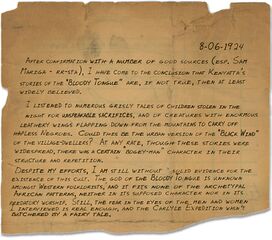 8-06-1924
After confirmation with a number of good sources (esp. Sam
Mariga - RR-STA), I have come to the conclusion that Kenyatta's
stories of the "Bloody Tongue" are, if not true, then at least
widely believed.
I listened to numerous grisly tales of children stolen in the
night for unspeakable sacrifices, and of creatures with enormous
leathery wings flapping down from the mountains to carry off
hapless Negroes. Could this be the urban version of the "Black Wind"
of the village-dwellers? At any rate, though these stories were
widespread, there was a certain bogey-man character in their
structure and repetition.
Despite my efforts, I am still without solid evidence for the
existence of this cult. The god of the Bloody Tongue is unknown
amongst Western folklorists, and it fits none of the archetypal
African patterns, neither in its supposed character nor in its
prescribed worship. Still, the fear in the eyes of the men and women
I interviewed is real enough, and the Carlyle Expedition wasn't
butchered by a fairy tale.